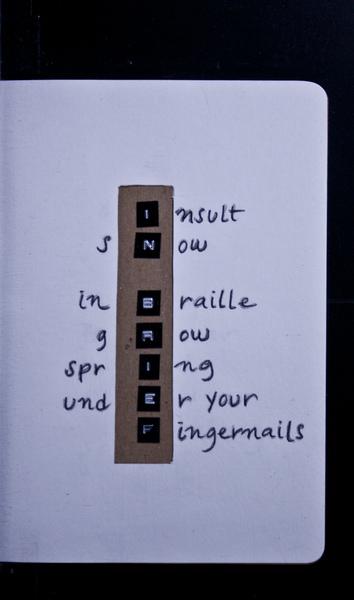 Insult
sNow
in Braille
gRow
sprIng
undEr your
Fingernails